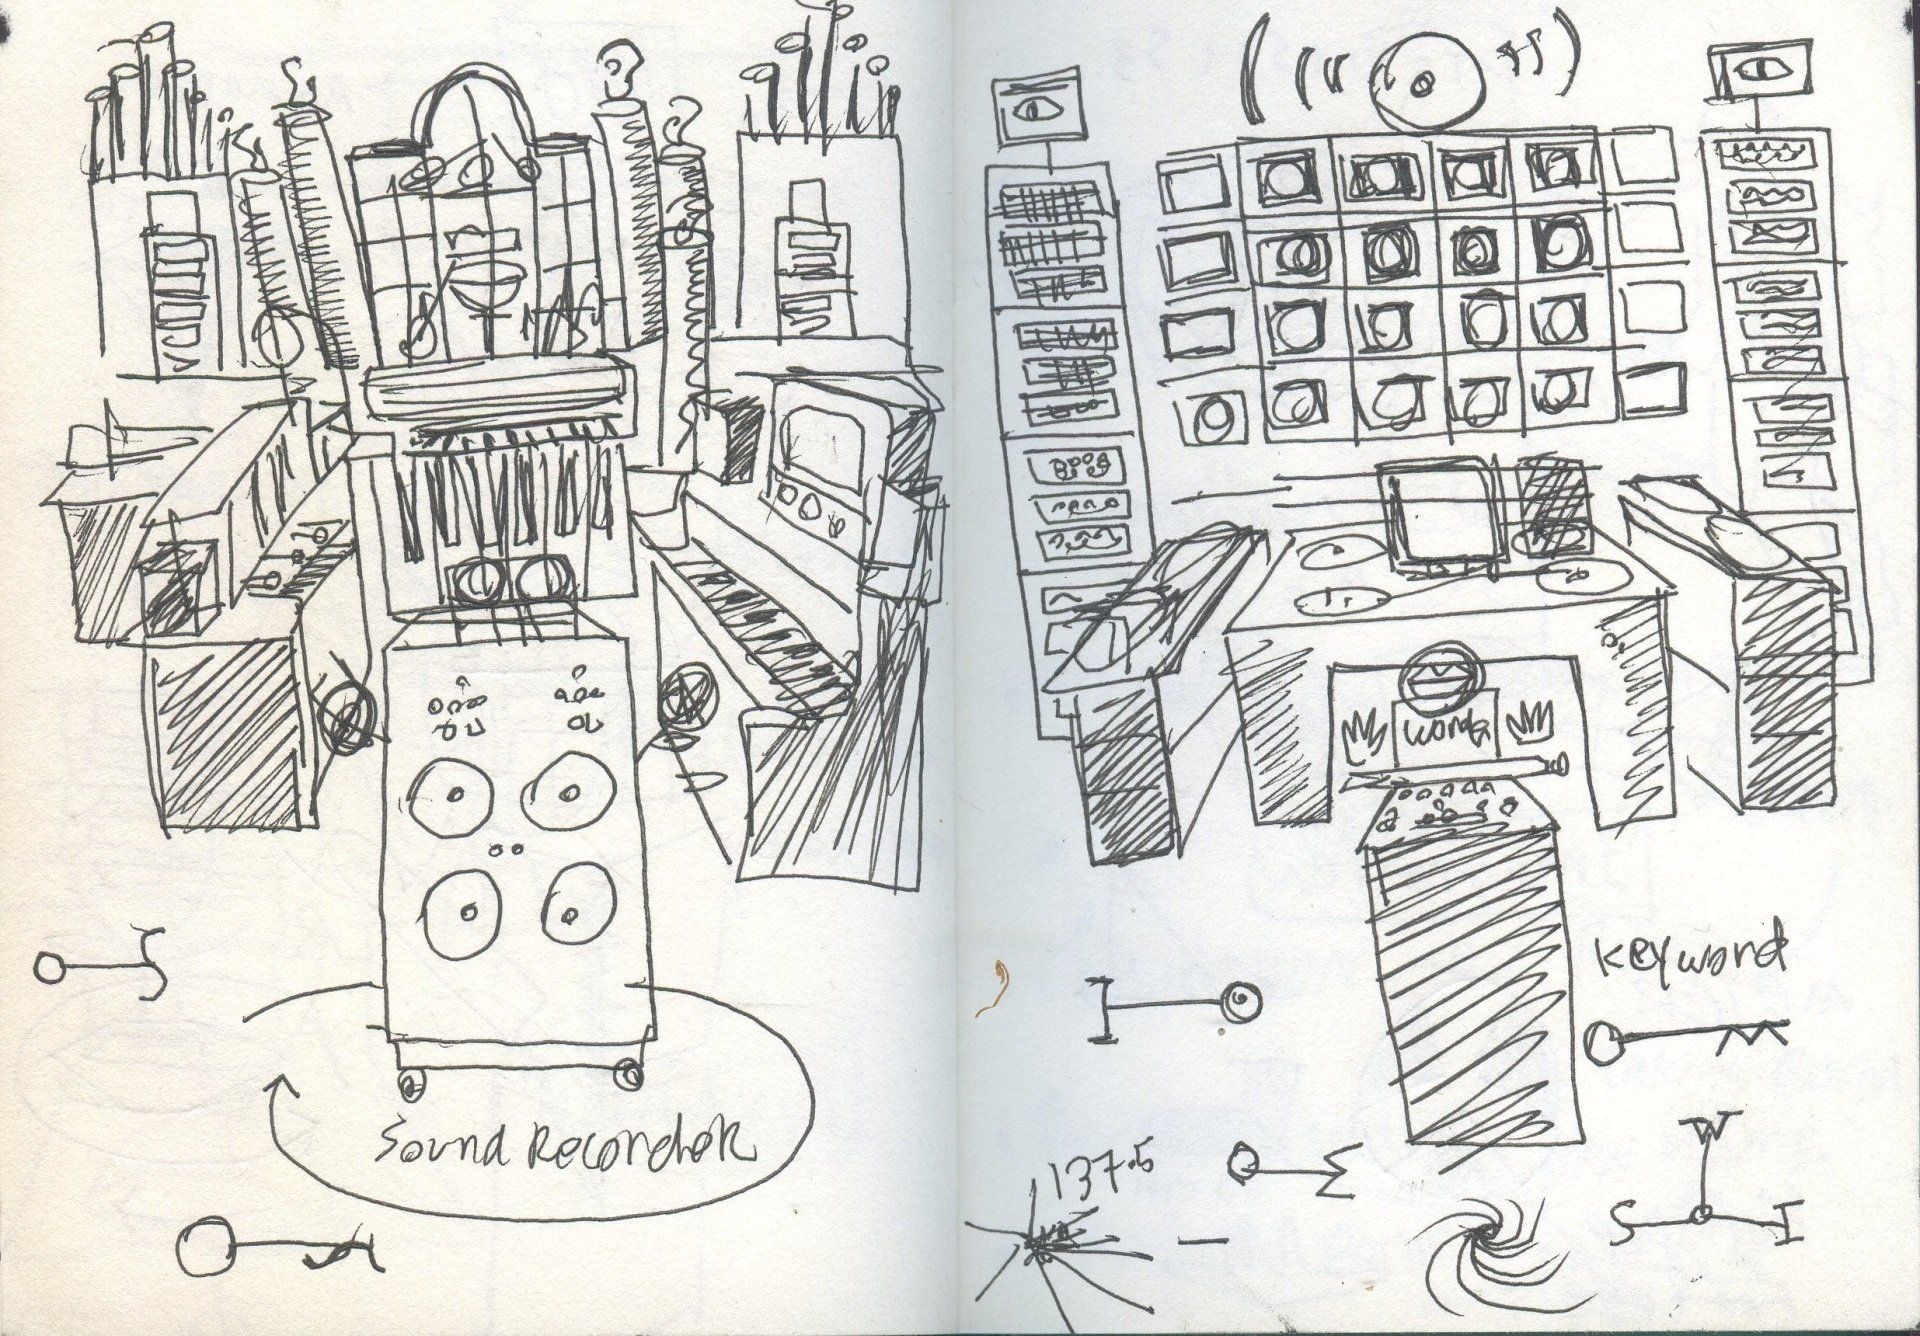 Sound Recorder
words
Keyword
137.5
W
S I